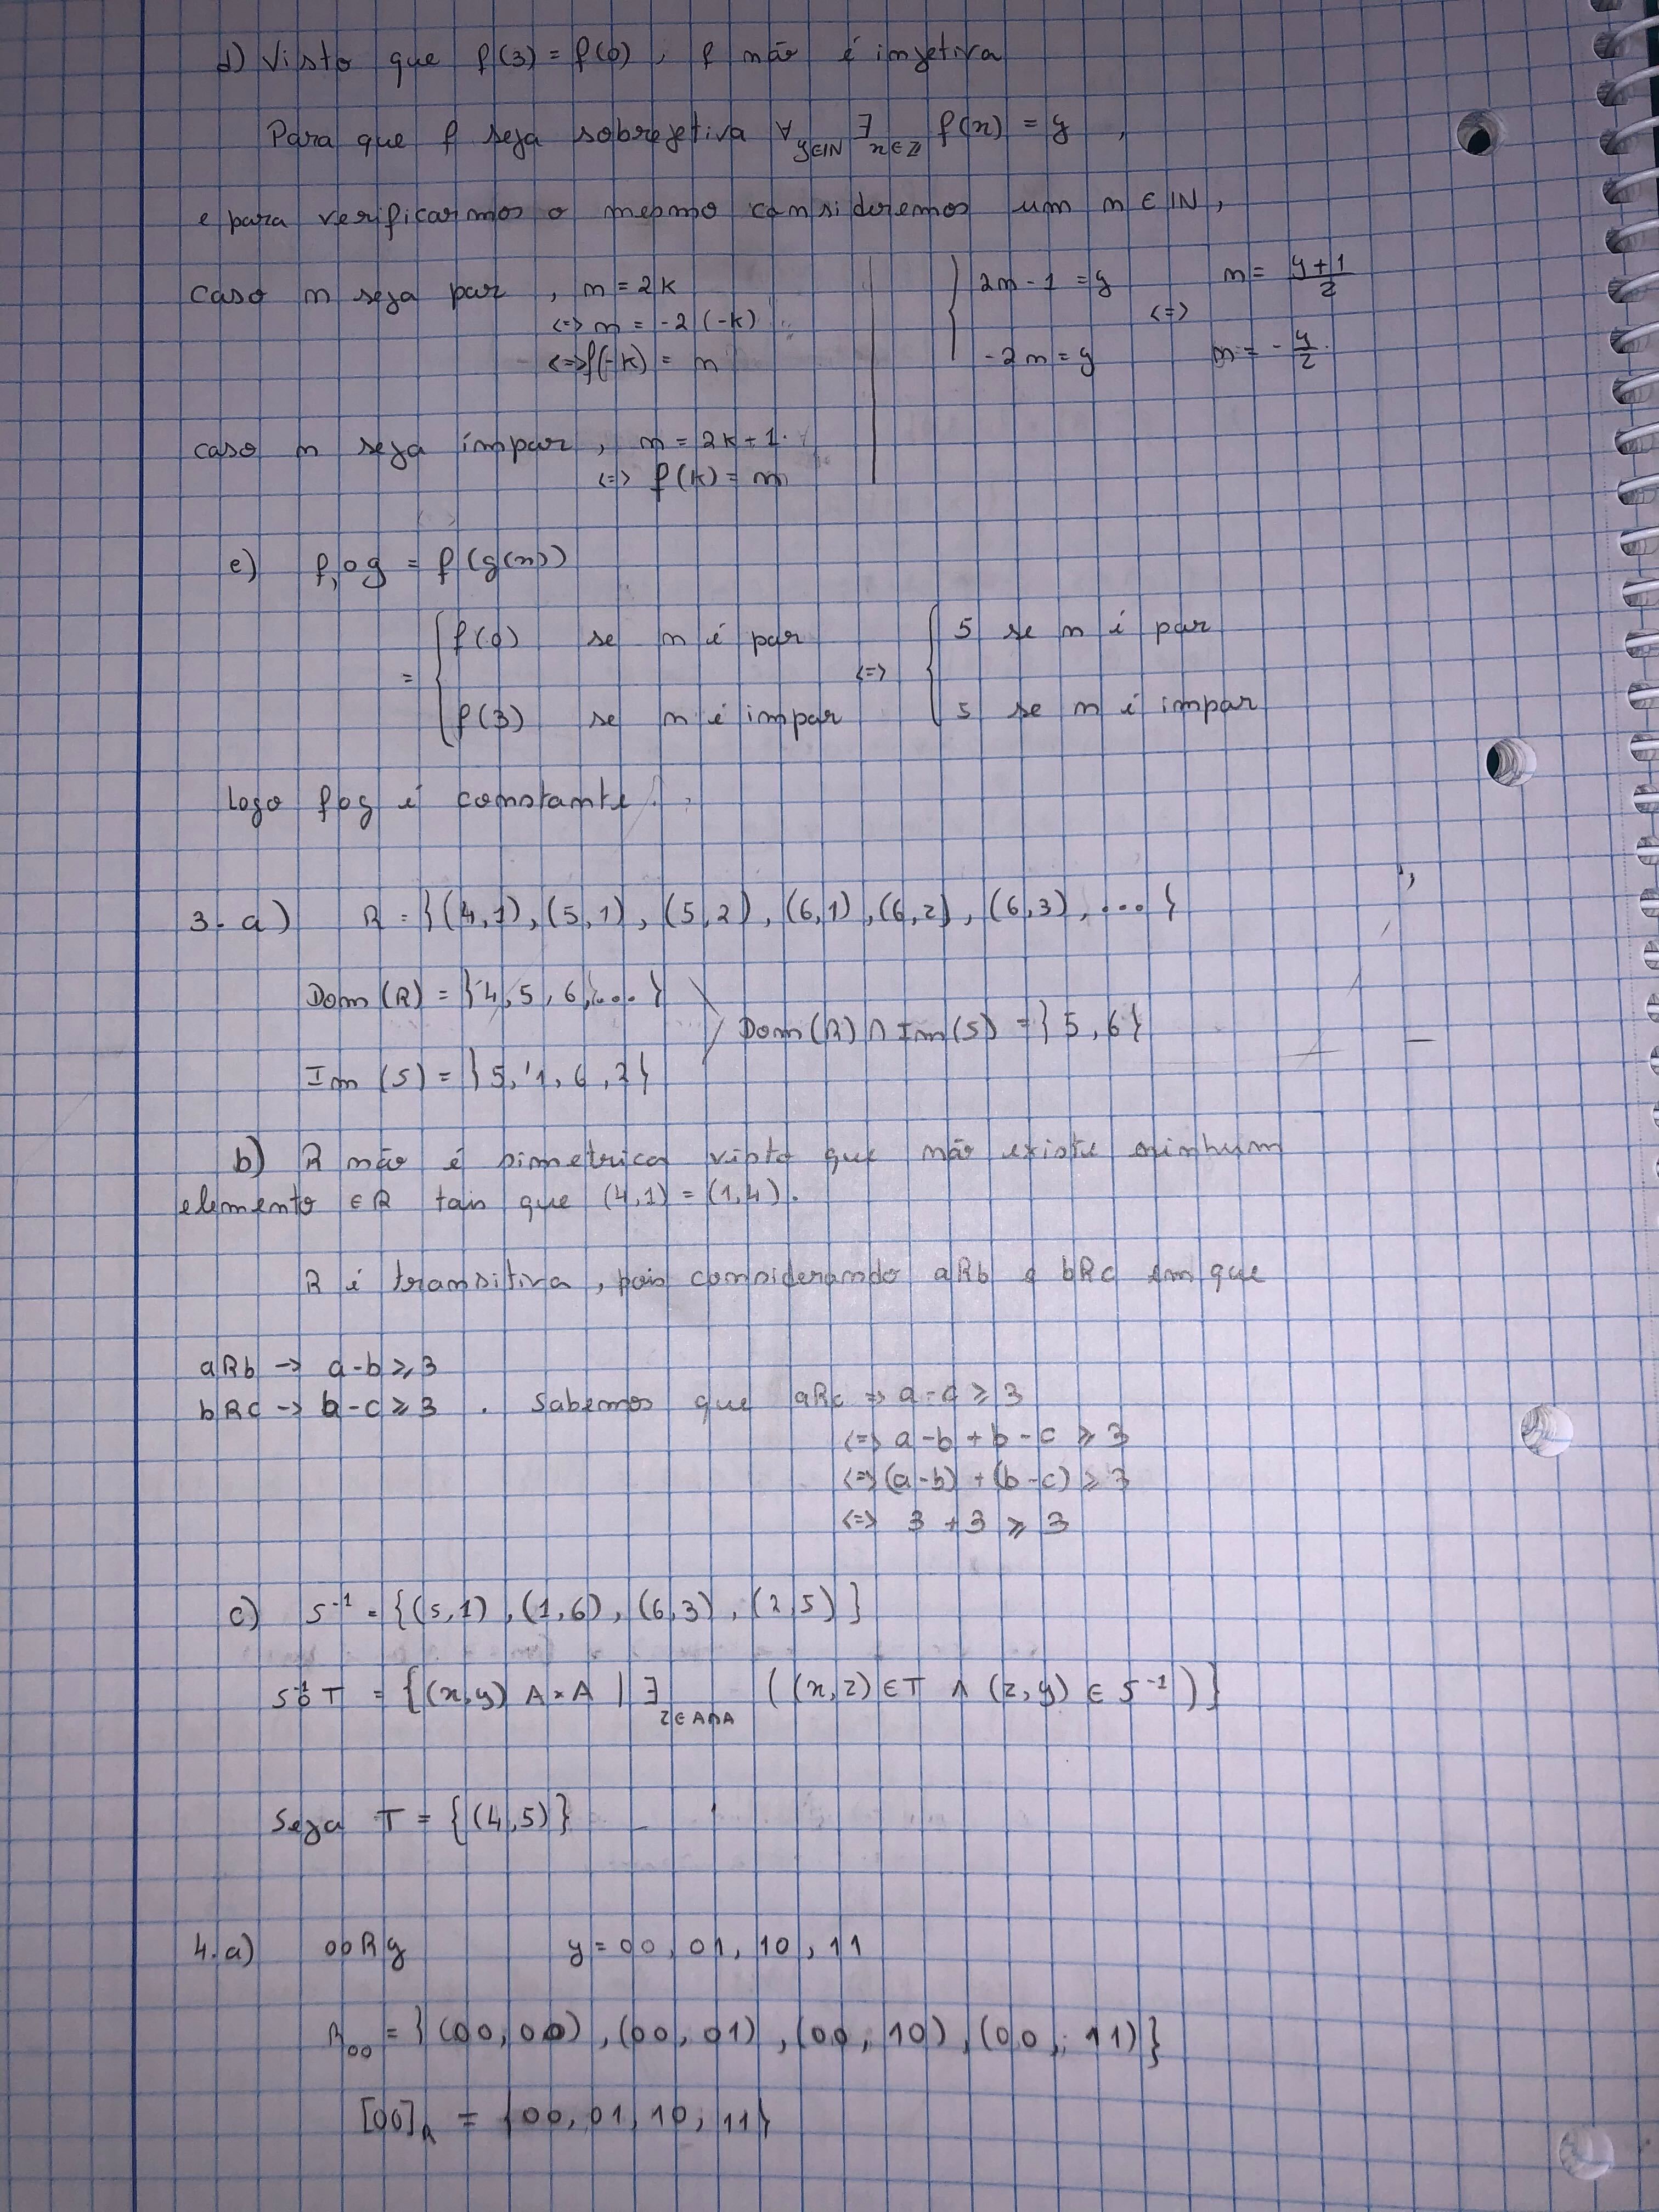 d) Visto que f(3) = f(0), f não é injetiva
Para que f seja sobrejetiva ∀y∈IN ∃n∈Z f(n) = y,
e para verificarmos o mesmo consideremos um n ∈ IN,
caso n seja par, n = 2k
<=> n = -2(-k)
<=> f(-k) = n
caso n seja ímpar, n = 2k+1.
<=> f(k) = n
{ 2n - 1 = y <=> n = (y+1)/2
-2n = y n = -y/2
e) f∘g = f(g(n))
= { f(0) se n é par <=> { 5 se n é par
f(3) se n é impar 5 se n é impar
Logo fog é constante.
3. a) R = {(4,1), (5,1), (5,2), (6,1), (6,2), (6,3), ...}
Dom(R) = {4, 5, 6, ...}
Dom(R) ∩ Im(S) = {5, 6}
Im(S) = {5, 1, 6, 2}
b) R não é simetrica visto que não existe ninhum
elemento ∈ R tais que (4,1) = (1,4).
R é transitiva, pois considerando aRb e bRc em que
aRb -> a-b ≥ 3
bRc -> b-c ≥ 3. Sabemos que aRc => a-c ≥ 3
<=> a-b+b-c ≥ 3
<=> (a-b) + (b-c) ≥ 3
<=> 3 + 3 ≥ 3
c) S⁻¹ = {(5,1), (1,6), (6,3), (2,5)}
S⁻¹∘T = {(x,y) A×A | ∃z∈A∩A ((x,z) ∈ T ∧ (z,y) ∈ S⁻¹)}
Seja T = {(4,5)}
4. a) 00Ry y = 00, 01, 10, 11
R₀₀ = {(00,00), (00,01), (00,10), (00,11)}
[00]R = {00, 01, 10, 11}